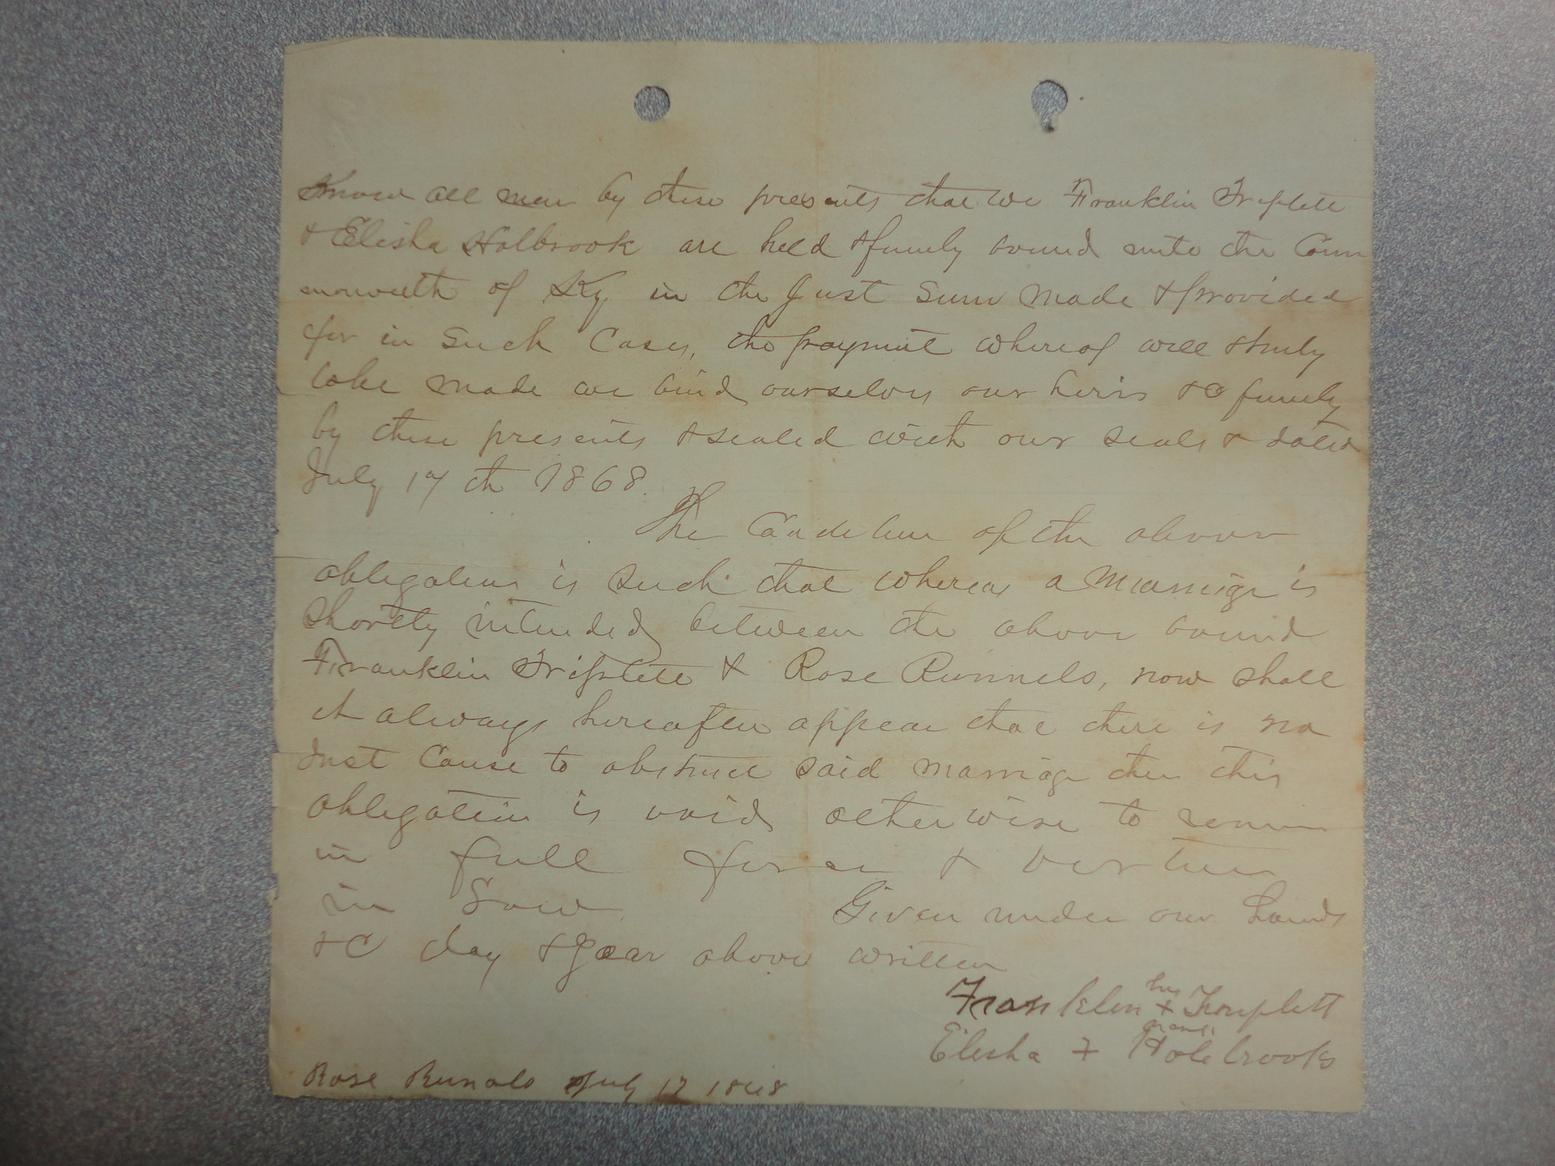 Know all men by these presents that we Franklin Triplett
& Elisha Holbrook are held & firmly bound unto the Com
monwelth of Ky in the Just Sum Made & provided
for in Such Cases, the payment whereof will & truly
tobe made we bind ourselves our heirs &C firmly
by these presents & sealed with our seals & dated
July 17 th 1868.
The Condition of the above
obligation is Such that whereas a Marriage is
Shortly intended between the above bound
Franklin Triplett & Rose Runnels, now shall
it always hereafter appear that there is no
Just Cause to obstruct said marriage then this
obligation is void otherwise to remain
in full force & virtue
in Law Given under our hands
&C day & year above written
his
Franklin + Triplett
mark
Elisha + Holebrooks
Rose Runals July 17 1868